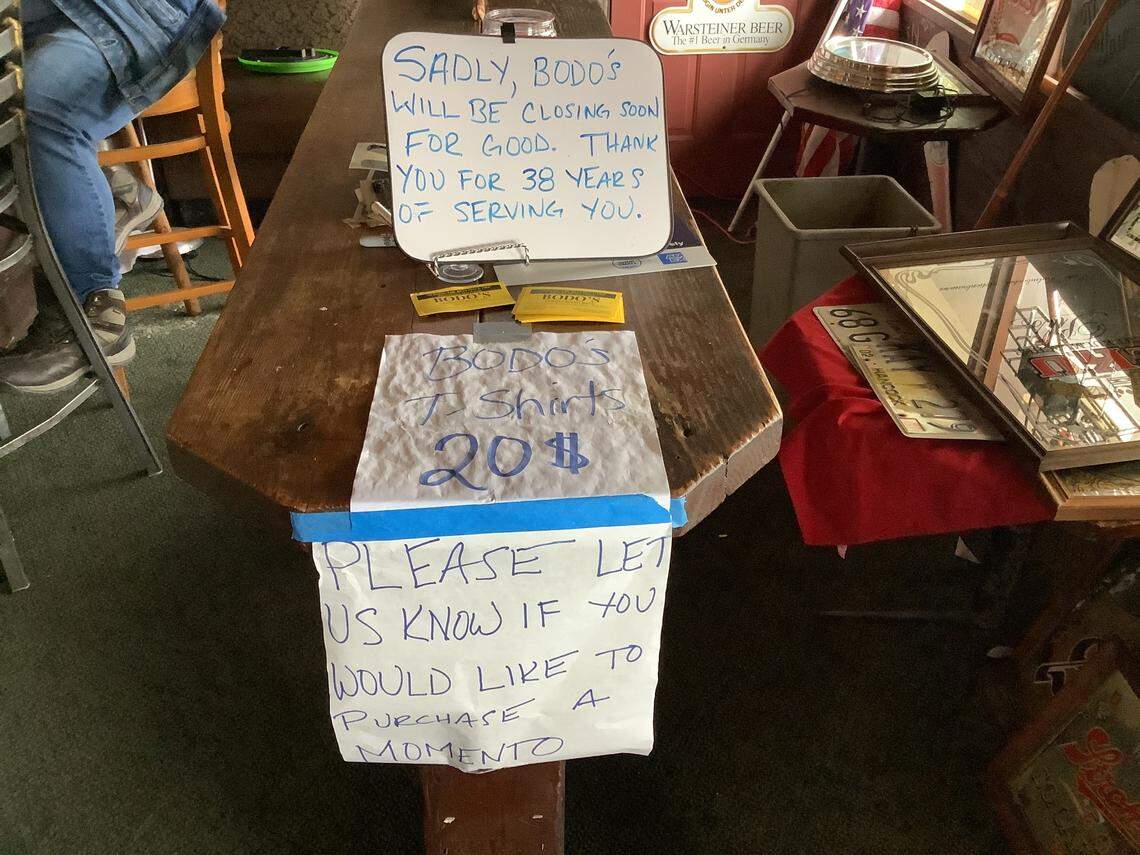 WARSTEINER BEER
The #1 Beer in Germany
SADLY, BODO'S
WILL BE CLOSING SOON
FOR GOOD. THANK
YOU FOR 38 YEARS
OF SERVING YOU.
BODO'S
BODO'S
BODO'S
T-Shirts
20$
PLEASE LET
US KNOW IF YOU
WOULD LIKE TO
PURCHASE A
MOMENTO
HANCOCK